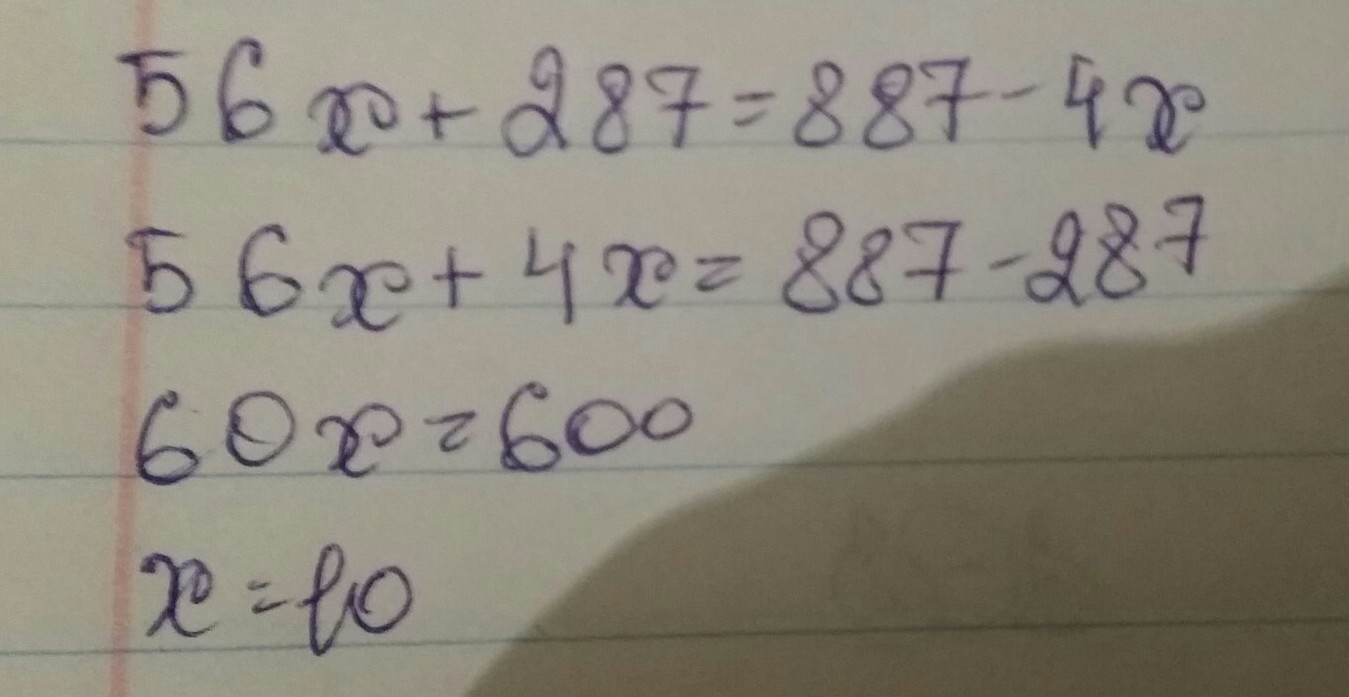 56x+287=887-4x
56x+4x=887-287
60x=600
x=10